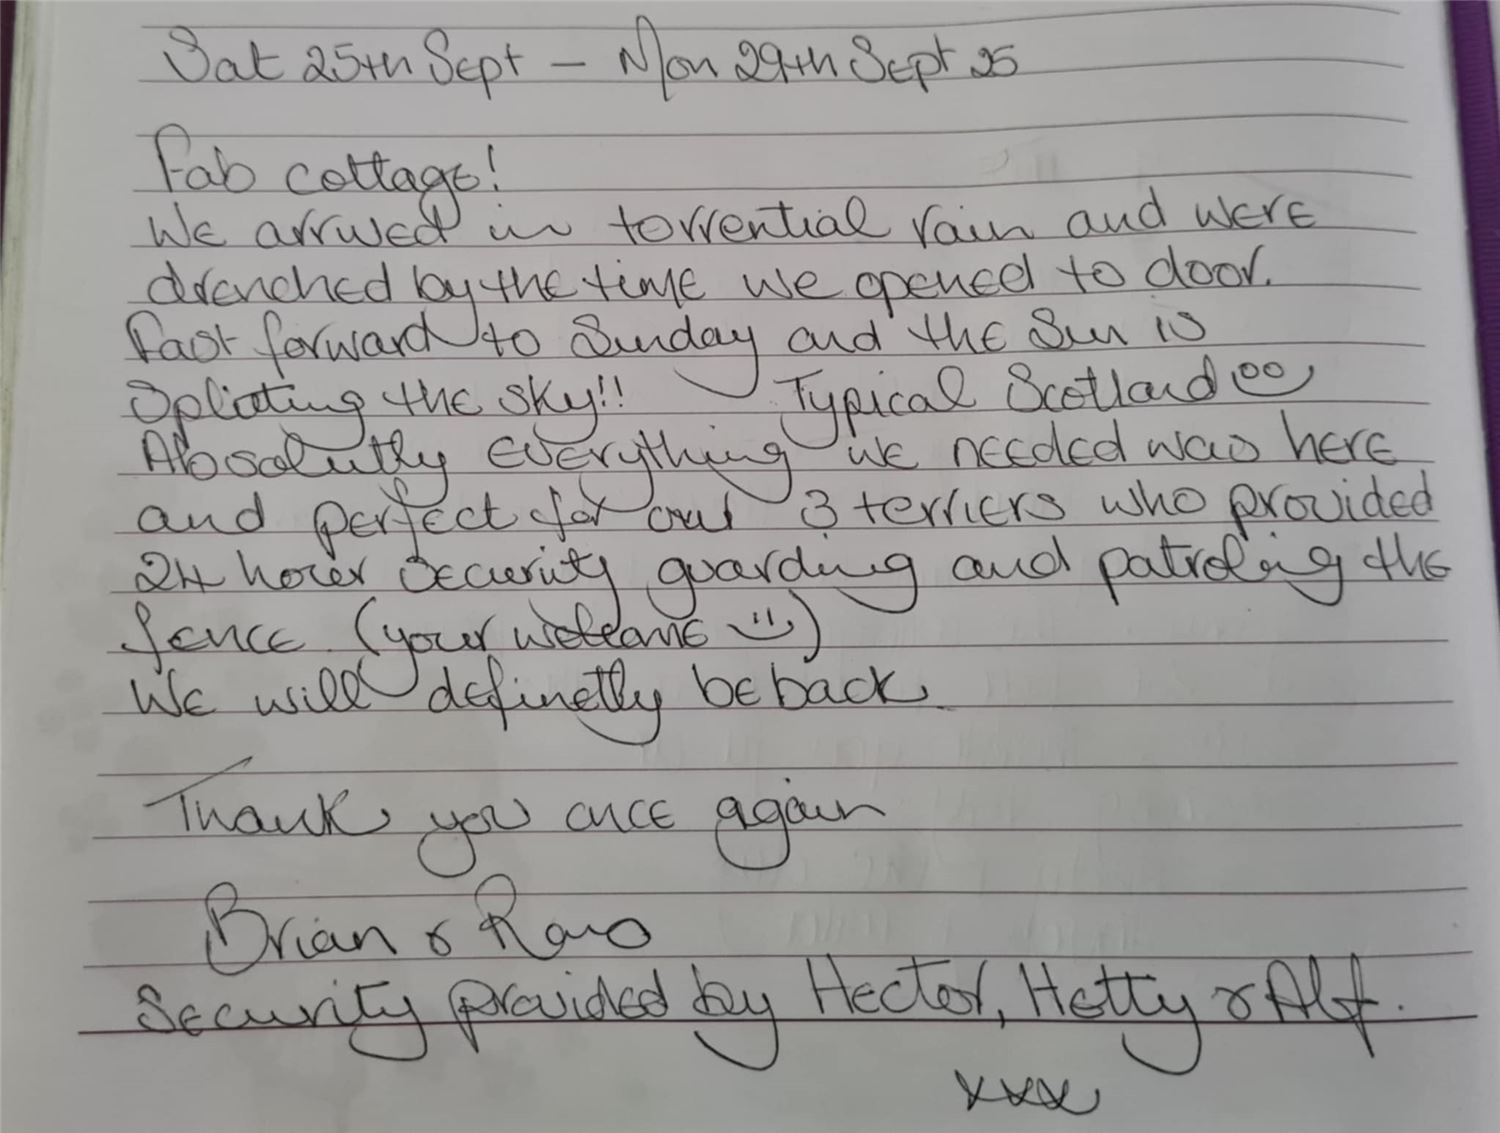 Sat 25th Sept – Mon 29th Sept 25
Fab cottage!
We arrived in torrential rain and were
drenched by the time we opened to door.
Fast forward to Sunday and the Sun is
Splitting the sky!! Typical Scotland
Absolutly everything we needed was here
and perfect for our 3 terriers who provided
24 hour security guarding and patroling the
fence. (your welcome)
We will definetly be back.
Thank you once again
Brian &
Security provided by Hector, Hetty & Alf.
xxx